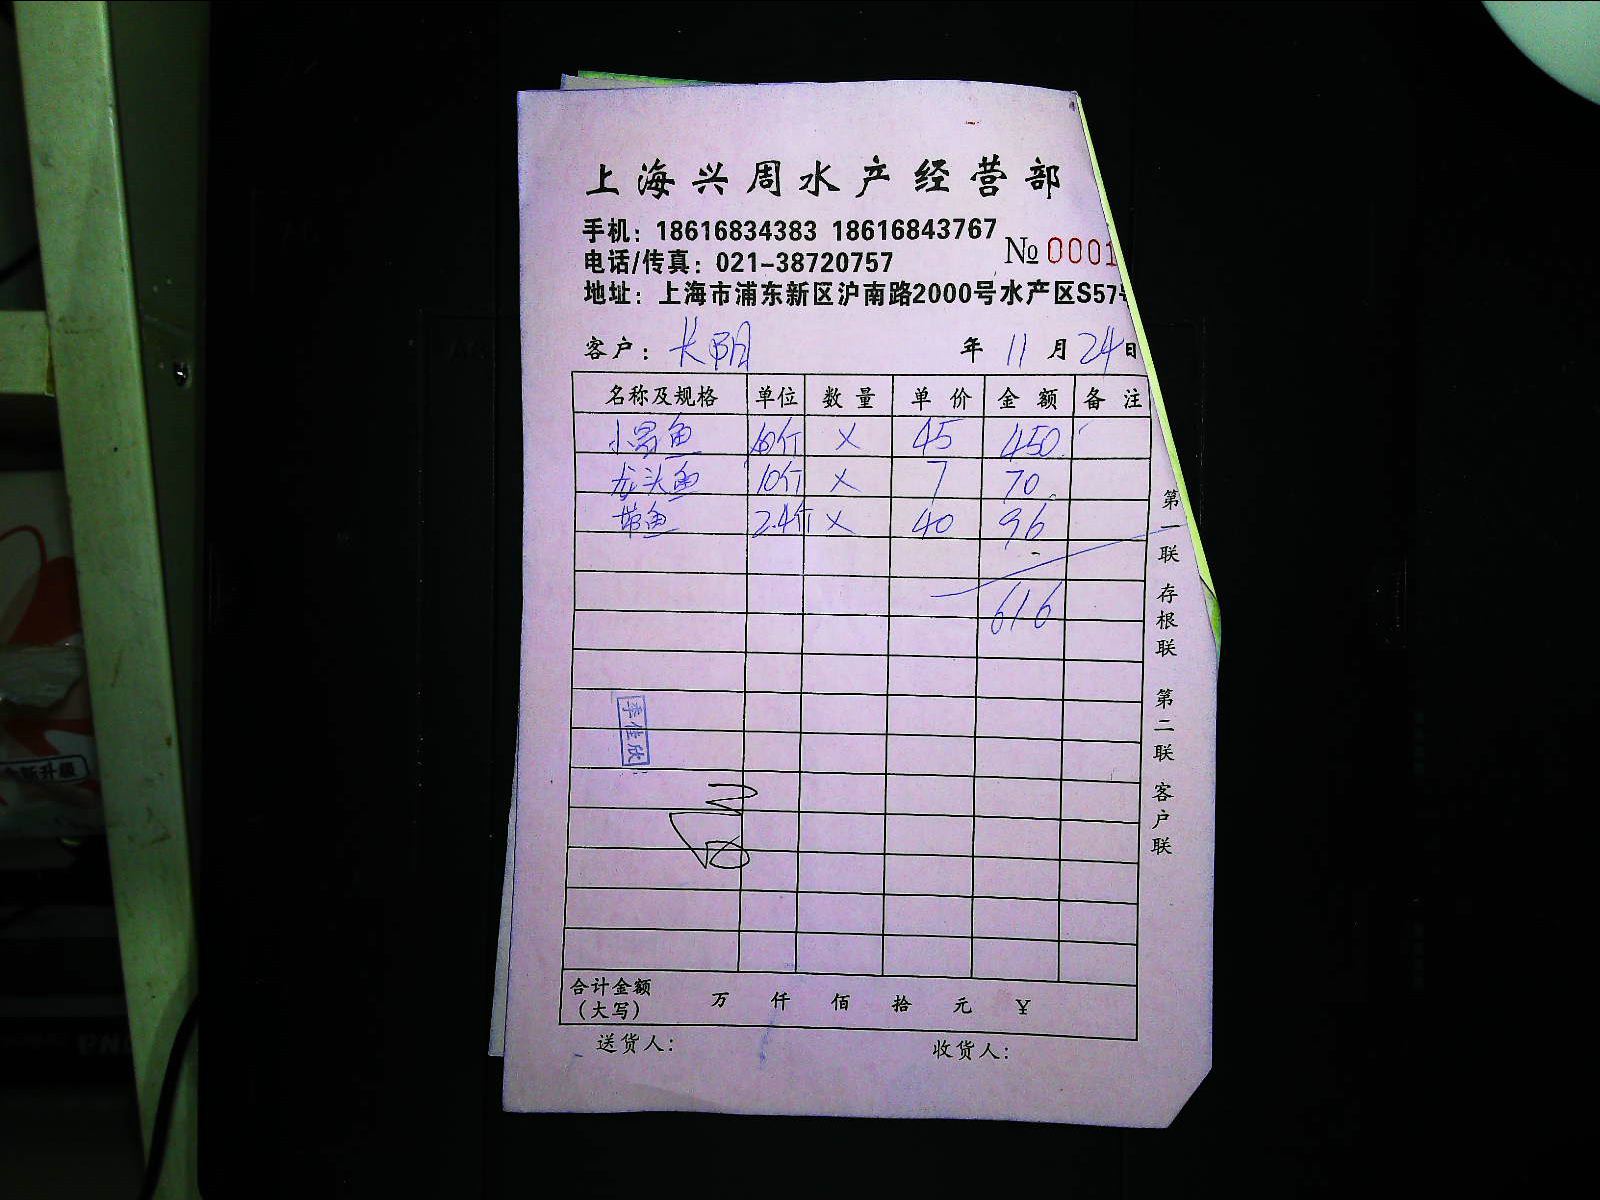 上海兴周水产经营部
手机：18616834383 18616843767
电话/传真：021-38720757
№0001
地址：上海市浦东新区沪南路2000号水产区S57号
客户：长阳 年 11 月 24 日
名称及规格 单位 数量 单价 金额 备注
10斤 × 45 450
龙头鱼 10斤 × 7 70
带鱼 2.4斤 × 40 96
616
李佳欣
合计金额（大写） 万 仟 佰 拾 元 ¥
送货人： 收货人：
第一联 存根联 第二联 客户联
全新升级